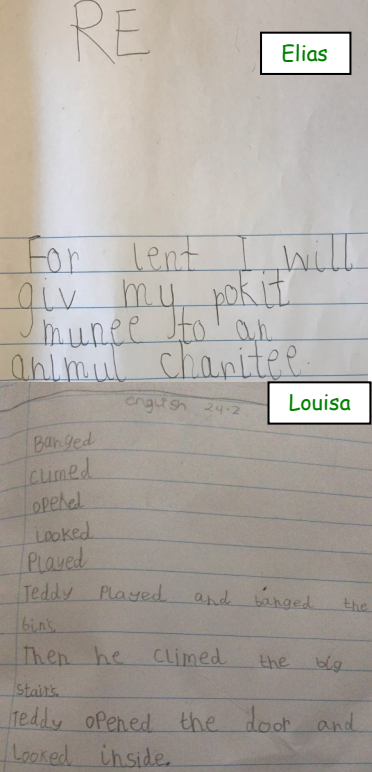 RE
Elias
For lent I will
giv my pokit
munee to an
animul charitee.
Louisa
english 24.2
Banged
climed
opened
Looked
Played
Teddy Played and banged the
bins
Then he climed the big
stairs
Teddy opened the door and
Looked inside.